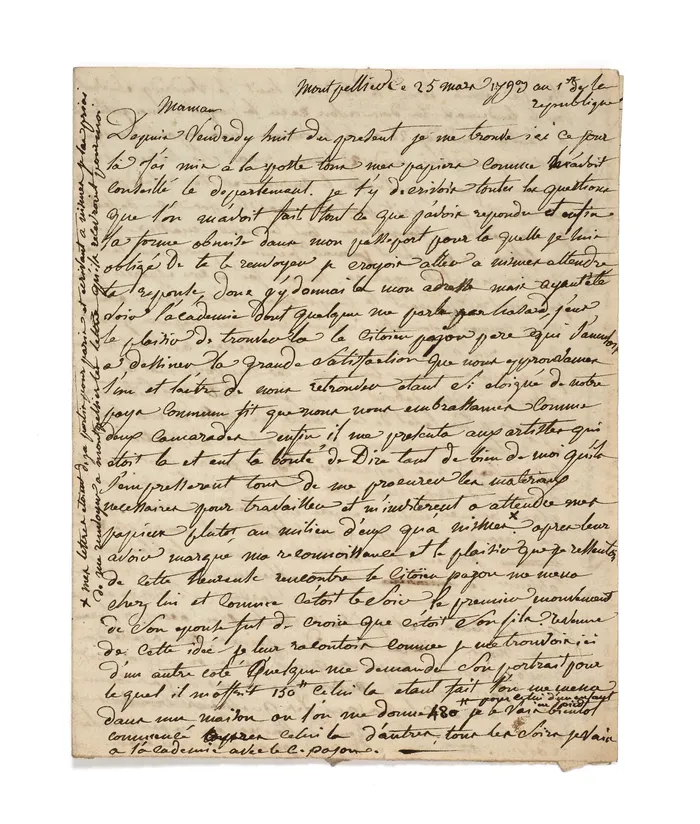 Montpellier Ce 25 mars 1793 an 1er de la
republique
Maman
Depuis Vendredy huit du present je me trouve ici ce jour
là J'ai mis a la poste tous mes papiers comme l'avoit
conseillé le departement. je t'y decrivois toutes les questions
que l'on m'avoit fait tout ce que j'avois repondu et enfin
la forme obmise dans mon passeport pour la quelle je suis
obligé de te le renvoyer je croyois aller a nismes attendre
ta reponse, donc j'y donnais mon adresse mais ayant été
voir l'academie dont quelque me parla par hasard j'eus
le plaisir de trouver la le Citoien pajon pere qui s'amusoit
a dessiner la grande Satisfaction que nous epprouvames
l'un et l'autre de nous retrouver etant Si eloigné de notre
pays Commun fit que nous nous embrassames Comme
deux Camarades enfin il me presenta aux artistes qui
etoit la et eut la bonté de Dire tant de bien de moi qu'ils
s'empresserent tous de me procurer les materiaux
necessaires pour travailler et m'inviterent a attendre mes
papiers plutot au milieu d'eux qua nismes x apres leur
avoir marqué ma reconnoissance et le plaisir que je ressentois
de cette heureuse rencontre le Citoien pajon me mena
chez lui et Comme c'etoit le Soir le premier mouvement
de Son epouse fut de croire que c'etoit Son fils? revenue
de cette idée je leur racontois comme je me trouvois ici
d'un autre coté Quelqun me demanda Son portrait pour
le quel il m'offrit 150 ₶ Celui la etant fait l'on me mena
dans une maison ou l'on me donna 480 ₶ pour celui d'un enfant en pied je le Vais bientot
commencé apres Celui la d'autres, tous les Soirs je Vais
a l'academie avec le C. pajon.
x mes lettres etant deja partie pour paris et ecrivant a nismes je les priai
de me renvoyer a montpellier les lettres qu'ils recevroient pour moi